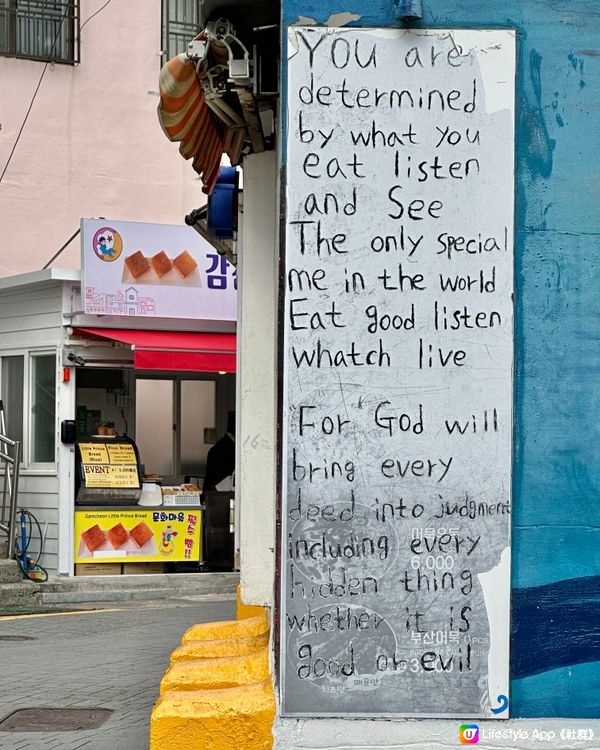 YOU are
determined
by what you
eat listen
and See
The only special
me in the world
Eat good listen
whatch live
For God will
bring every
deed into judgment
including every
hidden thing
whether it is
good or evil
6,000
부산어묵
치즈맛
매운맛
Little Prince
Bread
(Rice)
Rice Bread
EVENT
Gamcheon Little Prince Bread
문화마을
Lifestyle App《社群》